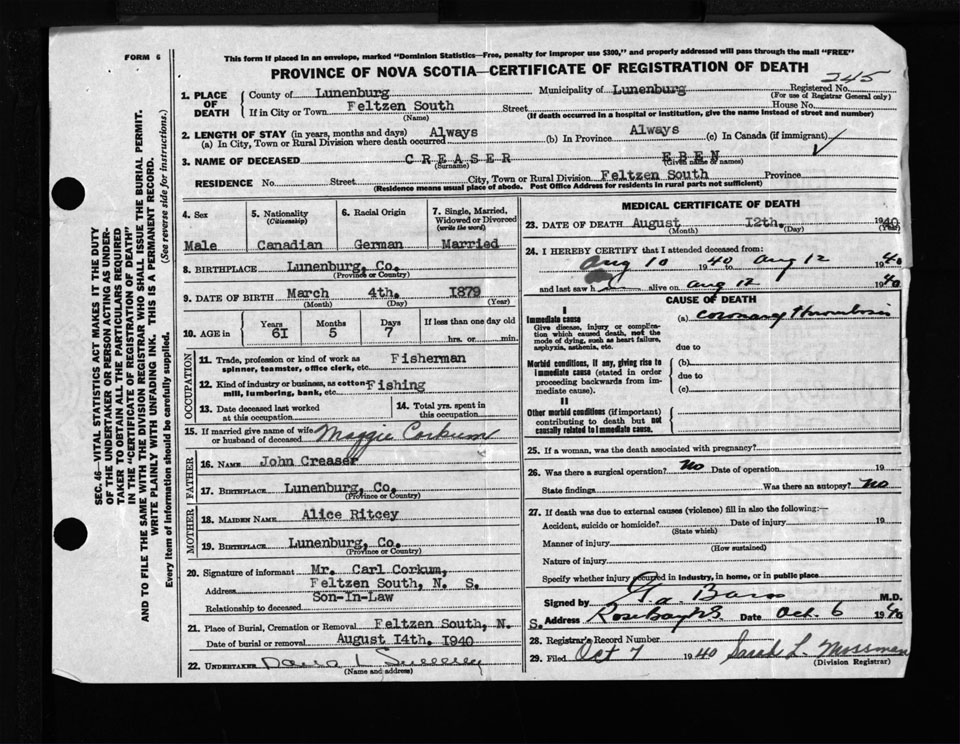 FORM 6
This form if placed in an envelope, marked "Dominion Statistics—Free, penalty for improper use $300," and properly addressed will pass through the mail "FREE"
PROVINCE OF NOVA SCOTIA—CERTIFICATE OF REGISTRATION OF DEATH
245
1. PLACE OF DEATH
County of Lunenburg Municipality of Lunenburg Registered No.
(For use of Registrar General only)
If in City or Town Feltzen South Street House No.
(Name) (If death occurred in a hospital or institution, give the name instead of street and number)
2. LENGTH OF STAY (in years, months and days)
(a) In City, Town or Rural Division where death occurred Always (b) In Province Always (c) In Canada (if immigrant) ✓
3. NAME OF DECEASED CREASER EBEN
(Surname) (Given name or names)
RESIDENCE No. Street City, Town or Rural Division Feltzen South Province
(Residence means usual place of abode. Post Office Address for residents in rural parts not sufficient)
4. Sex
Male
5. Nationality
(Citizenship)
Canadian
6. Racial Origin
German
7. Single, Married, Widowed or Divorced
(write the word)
Married
8. BIRTHPLACE Lunenburg, Co.
(Province or Country)
9. DATE OF BIRTH March 4th. 1879
(Month) (Day) (Year)
10. AGE in
Years 61
Months 5
Days 7
If less than one day old
hrs. or min.
OCCUPATION
11. Trade, profession or kind of work as spinner, teamster, office clerk, etc. Fisherman
12. Kind of industry or business, as cotton mill, lumbering, bank, etc. Fishing
13. Date deceased last worked at this occupation
14. Total yrs. spent in this occupation
15. If married give name of wife or husband of deceased Maggie Corkum
FATHER
16. NAME John Creaser
17. BIRTHPLACE Lunenburg, Co.
(Province or Country)
MOTHER
18. MAIDEN NAME Alice Ritcey
19. BIRTHPLACE Lunenburg, Co.
(Province or Country)
20. Signature of informant Mr. Carl Corkum,
Address Feltzen South, N. S.
Relationship to deceased Son-In-Law
21. Place of Burial, Cremation or Removal Feltzen South, N. S.
Date of burial or removal August 14th. 1940
22. UNDERTAKER
(Name and address)
MEDICAL CERTIFICATE OF DEATH
23. DATE OF DEATH August 12th. 1940
(Month) (Day) (Year)
24. I HEREBY CERTIFY that I attended deceased from:
Aug 10 1940 to Aug 12 1940
and last saw h alive on Aug 12 1940
CAUSE OF DEATH
I
Immediate cause
Give disease, injury or complication which caused death, not the mode of dying, such as heart failure, asphyxia, asthenia, etc.
(a) coronary thrombosis
due to
Morbid conditions, if any, giving rise to immediate cause (stated in order proceeding backwards from immediate cause).
(b)
due to
(c)
II
Other morbid conditions (if important) contributing to death but not causally related to immediate cause.
25. If a woman, was the death associated with pregnancy?
26. Was there a surgical operation? No Date of operation 19
State findings Was there an autopsy? No
27. If death was due to external causes (violence) fill in also the following:—
Accident, suicide or homicide? Date of injury 19
(State which)
Manner of injury
(How sustained)
Nature of injury
Specify whether injury occurred in industry, in home, or in public place
Signed by M.D.
Address Rose Bay N.S. Date Oct. 6 1940
28. Registrar's Record Number
29. Filed Oct 7 1940 Sarah L. Mossman
(Division Registrar)
SEC. 46—VITAL STATISTICS ACT MAKES IT THE DUTY
OF THE UNDERTAKER OR PERSON ACTING AS UNDER-
TAKER TO OBTAIN ALL THE PARTICULARS REQUIRED
IN THE "CERTIFICATE OF REGISTRATION OF DEATH"
AND TO FILE THE SAME WITH THE DIVISION REGISTRAR WHO SHALL ISSUE THE BURIAL PERMIT.
WRITE PLAINLY WITH UNFADING INK. THIS IS A PERMANENT RECORD.
Every item of information should be carefully supplied. (See reverse side for instructions.)